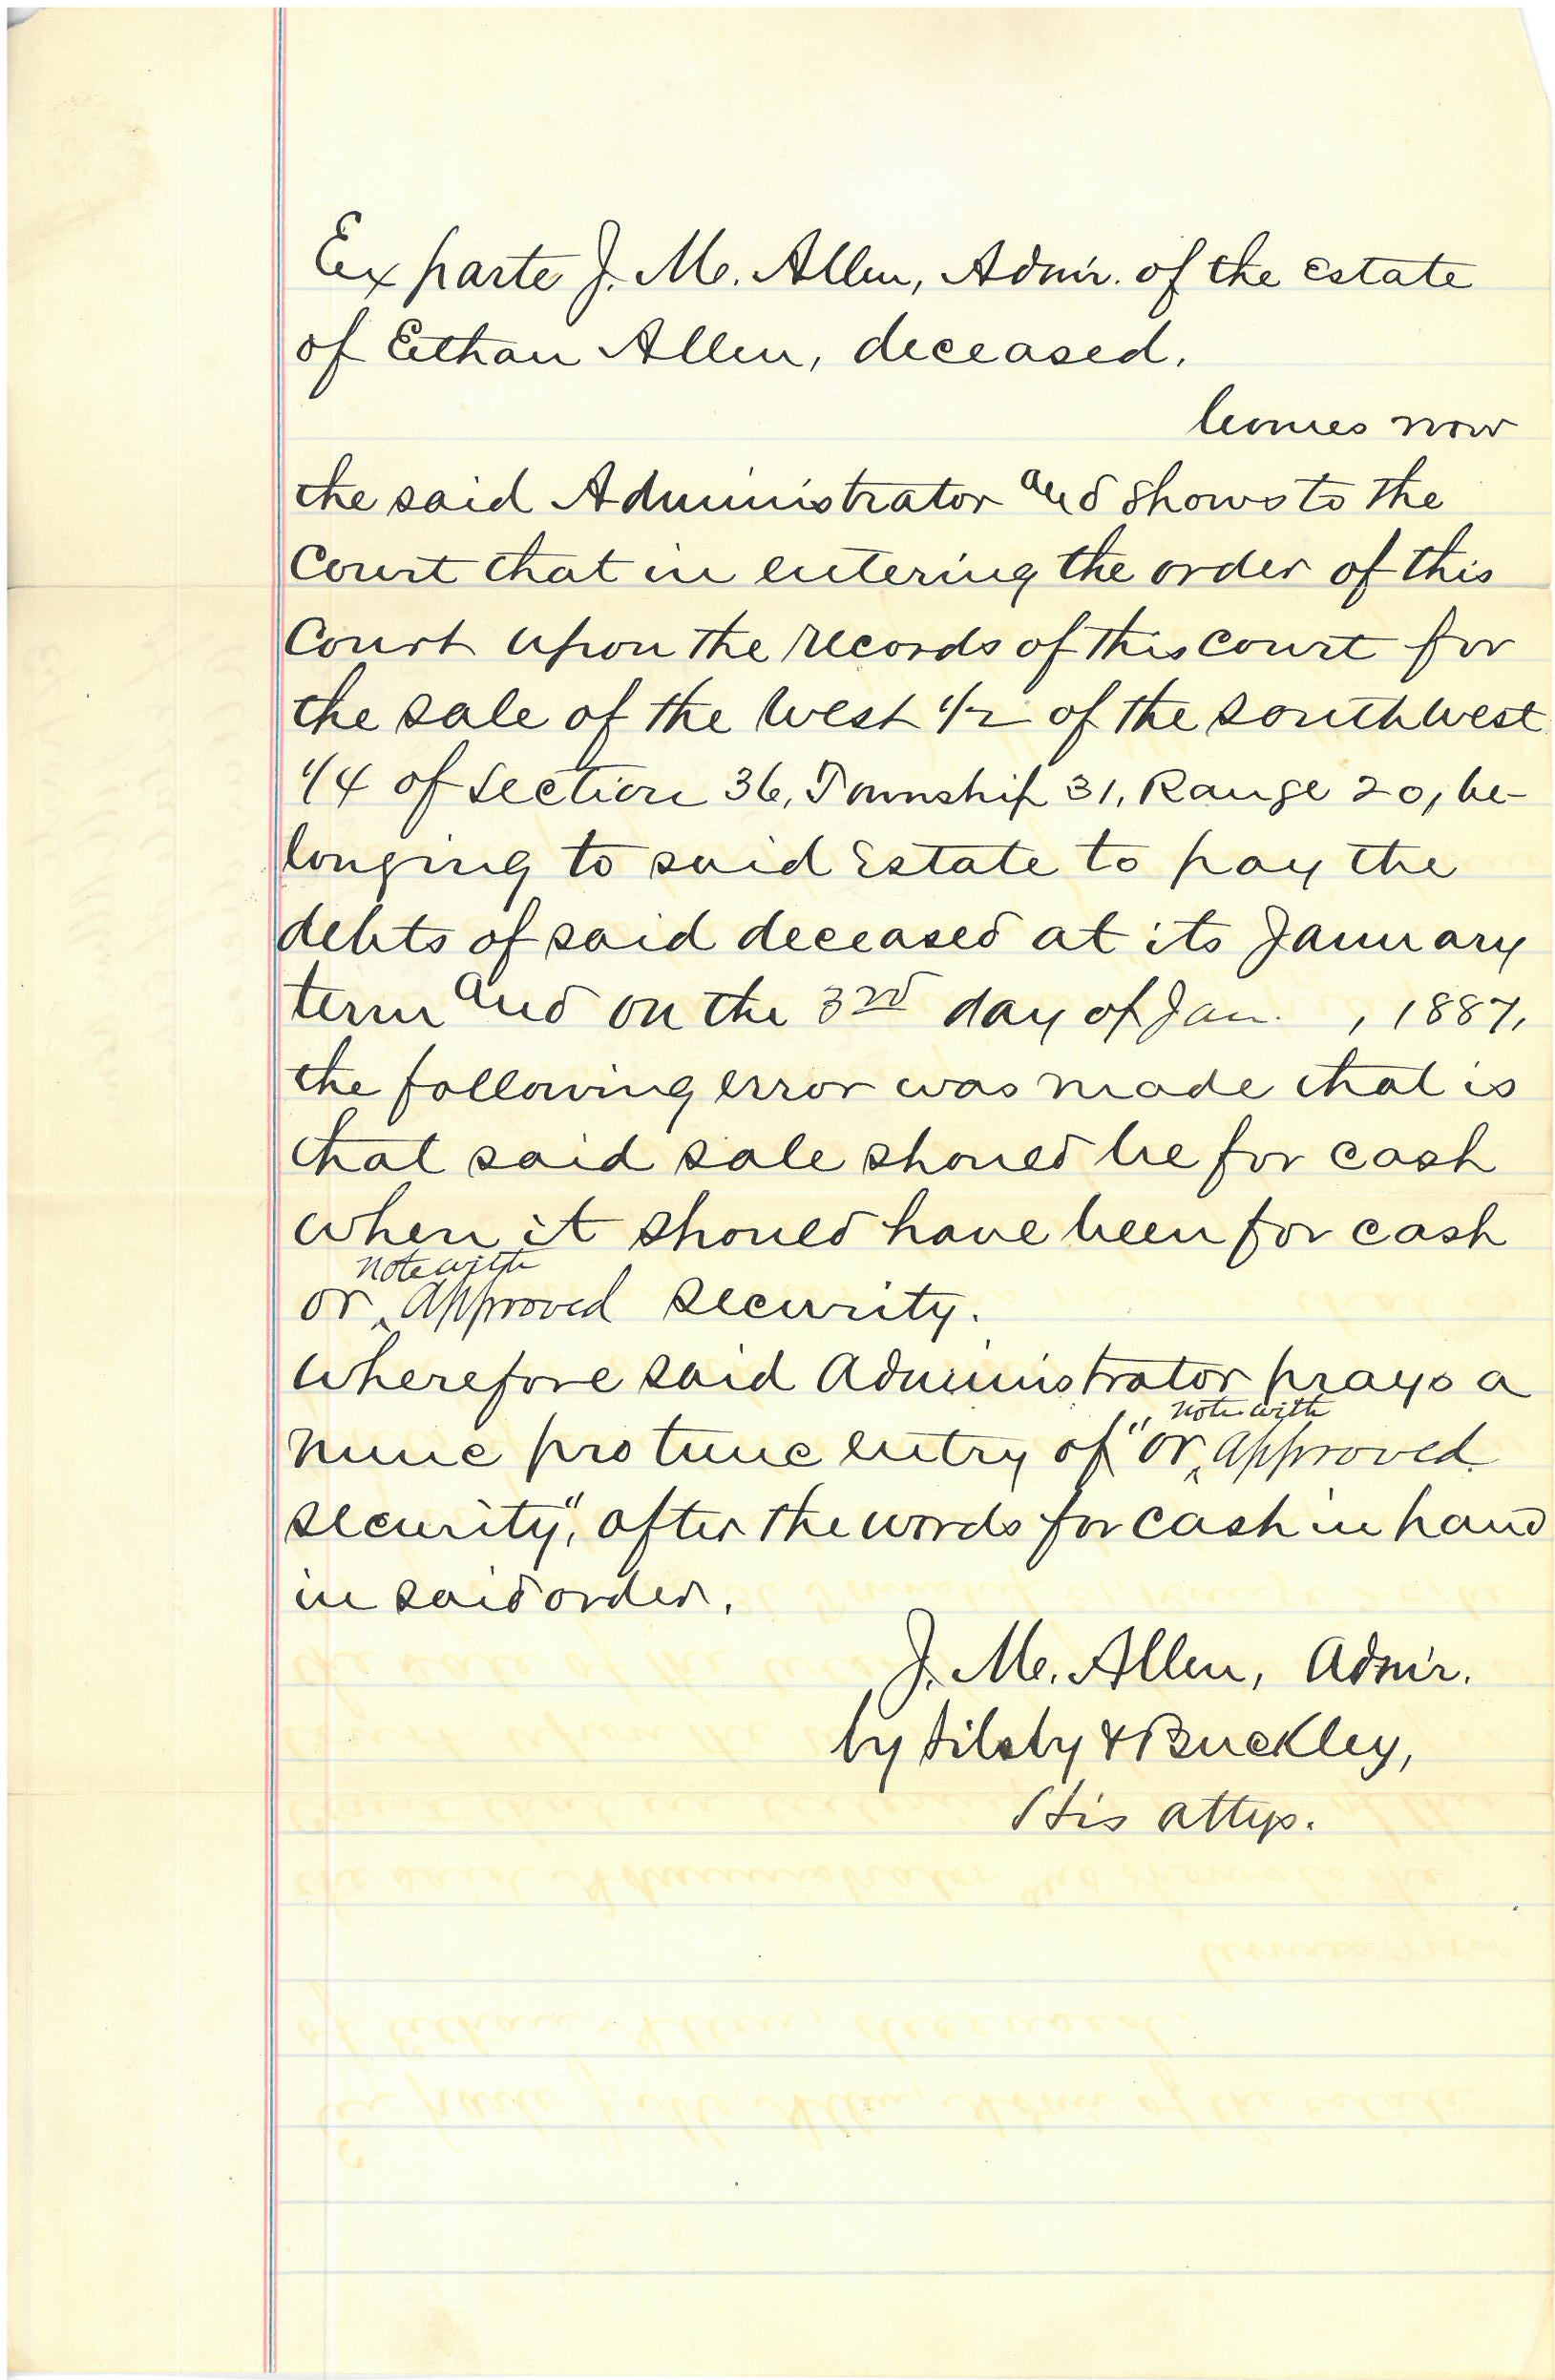 Ex parte J. M. Allen, Admr. of the estate
of Ethan Allen, deceased.
Comes now
the said Administrator and shows to the
Court that in entering the order of this
Court upon the records of this court for
the sale of the West 1/2 of the southwest
1/4 of Section 36, Township 31, Range 20, be-
longing to said Estate to pay the
debts of said deceased at its January
term and on the 3rd day of Jan. , 1887,
the following error was made that is
that said sale should be for cash
when it should have been for cash
note with
or ‸ approved security.
Wherefore said Administrator prays a
note with
nunc pro tunc entry of "or ‸ approved
security", after the words for cash in hand
in said order.
J. M. Allen, Admr.
by Silsby & Buckley,
His attys.